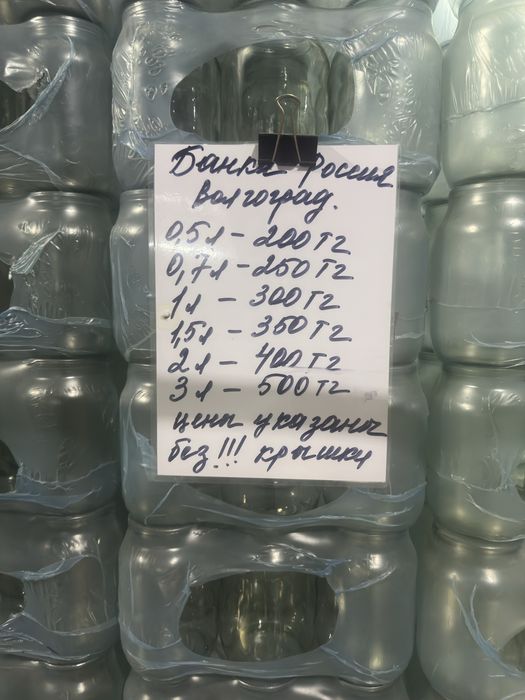 Банка Россия
Волгоград.
0,5л - 200 тг
0,7л - 250 тг
1л - 300 тг
1,5л - 350 тг
2л - 400 тг
3л - 500 тг
цены указаны
без!!! крышки